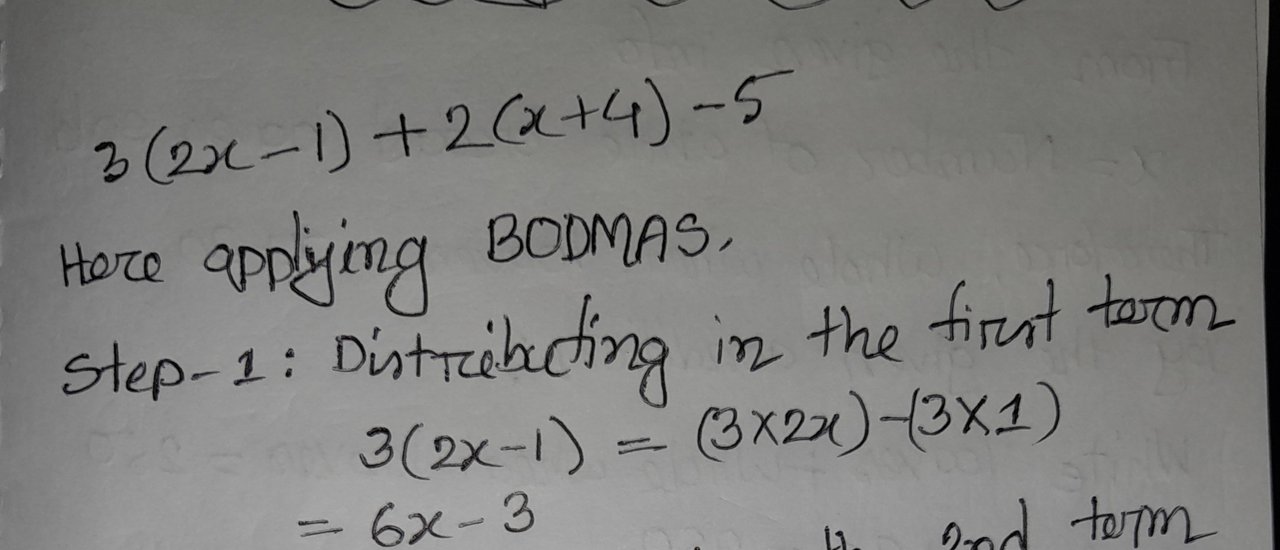 3(2x-1) + 2(x+4) - 5
Here applying BODMAS.
Step-1: Distributing in the first term
3(2x-1) = (3×2x)-(3×1)
= 6x - 3
2nd term